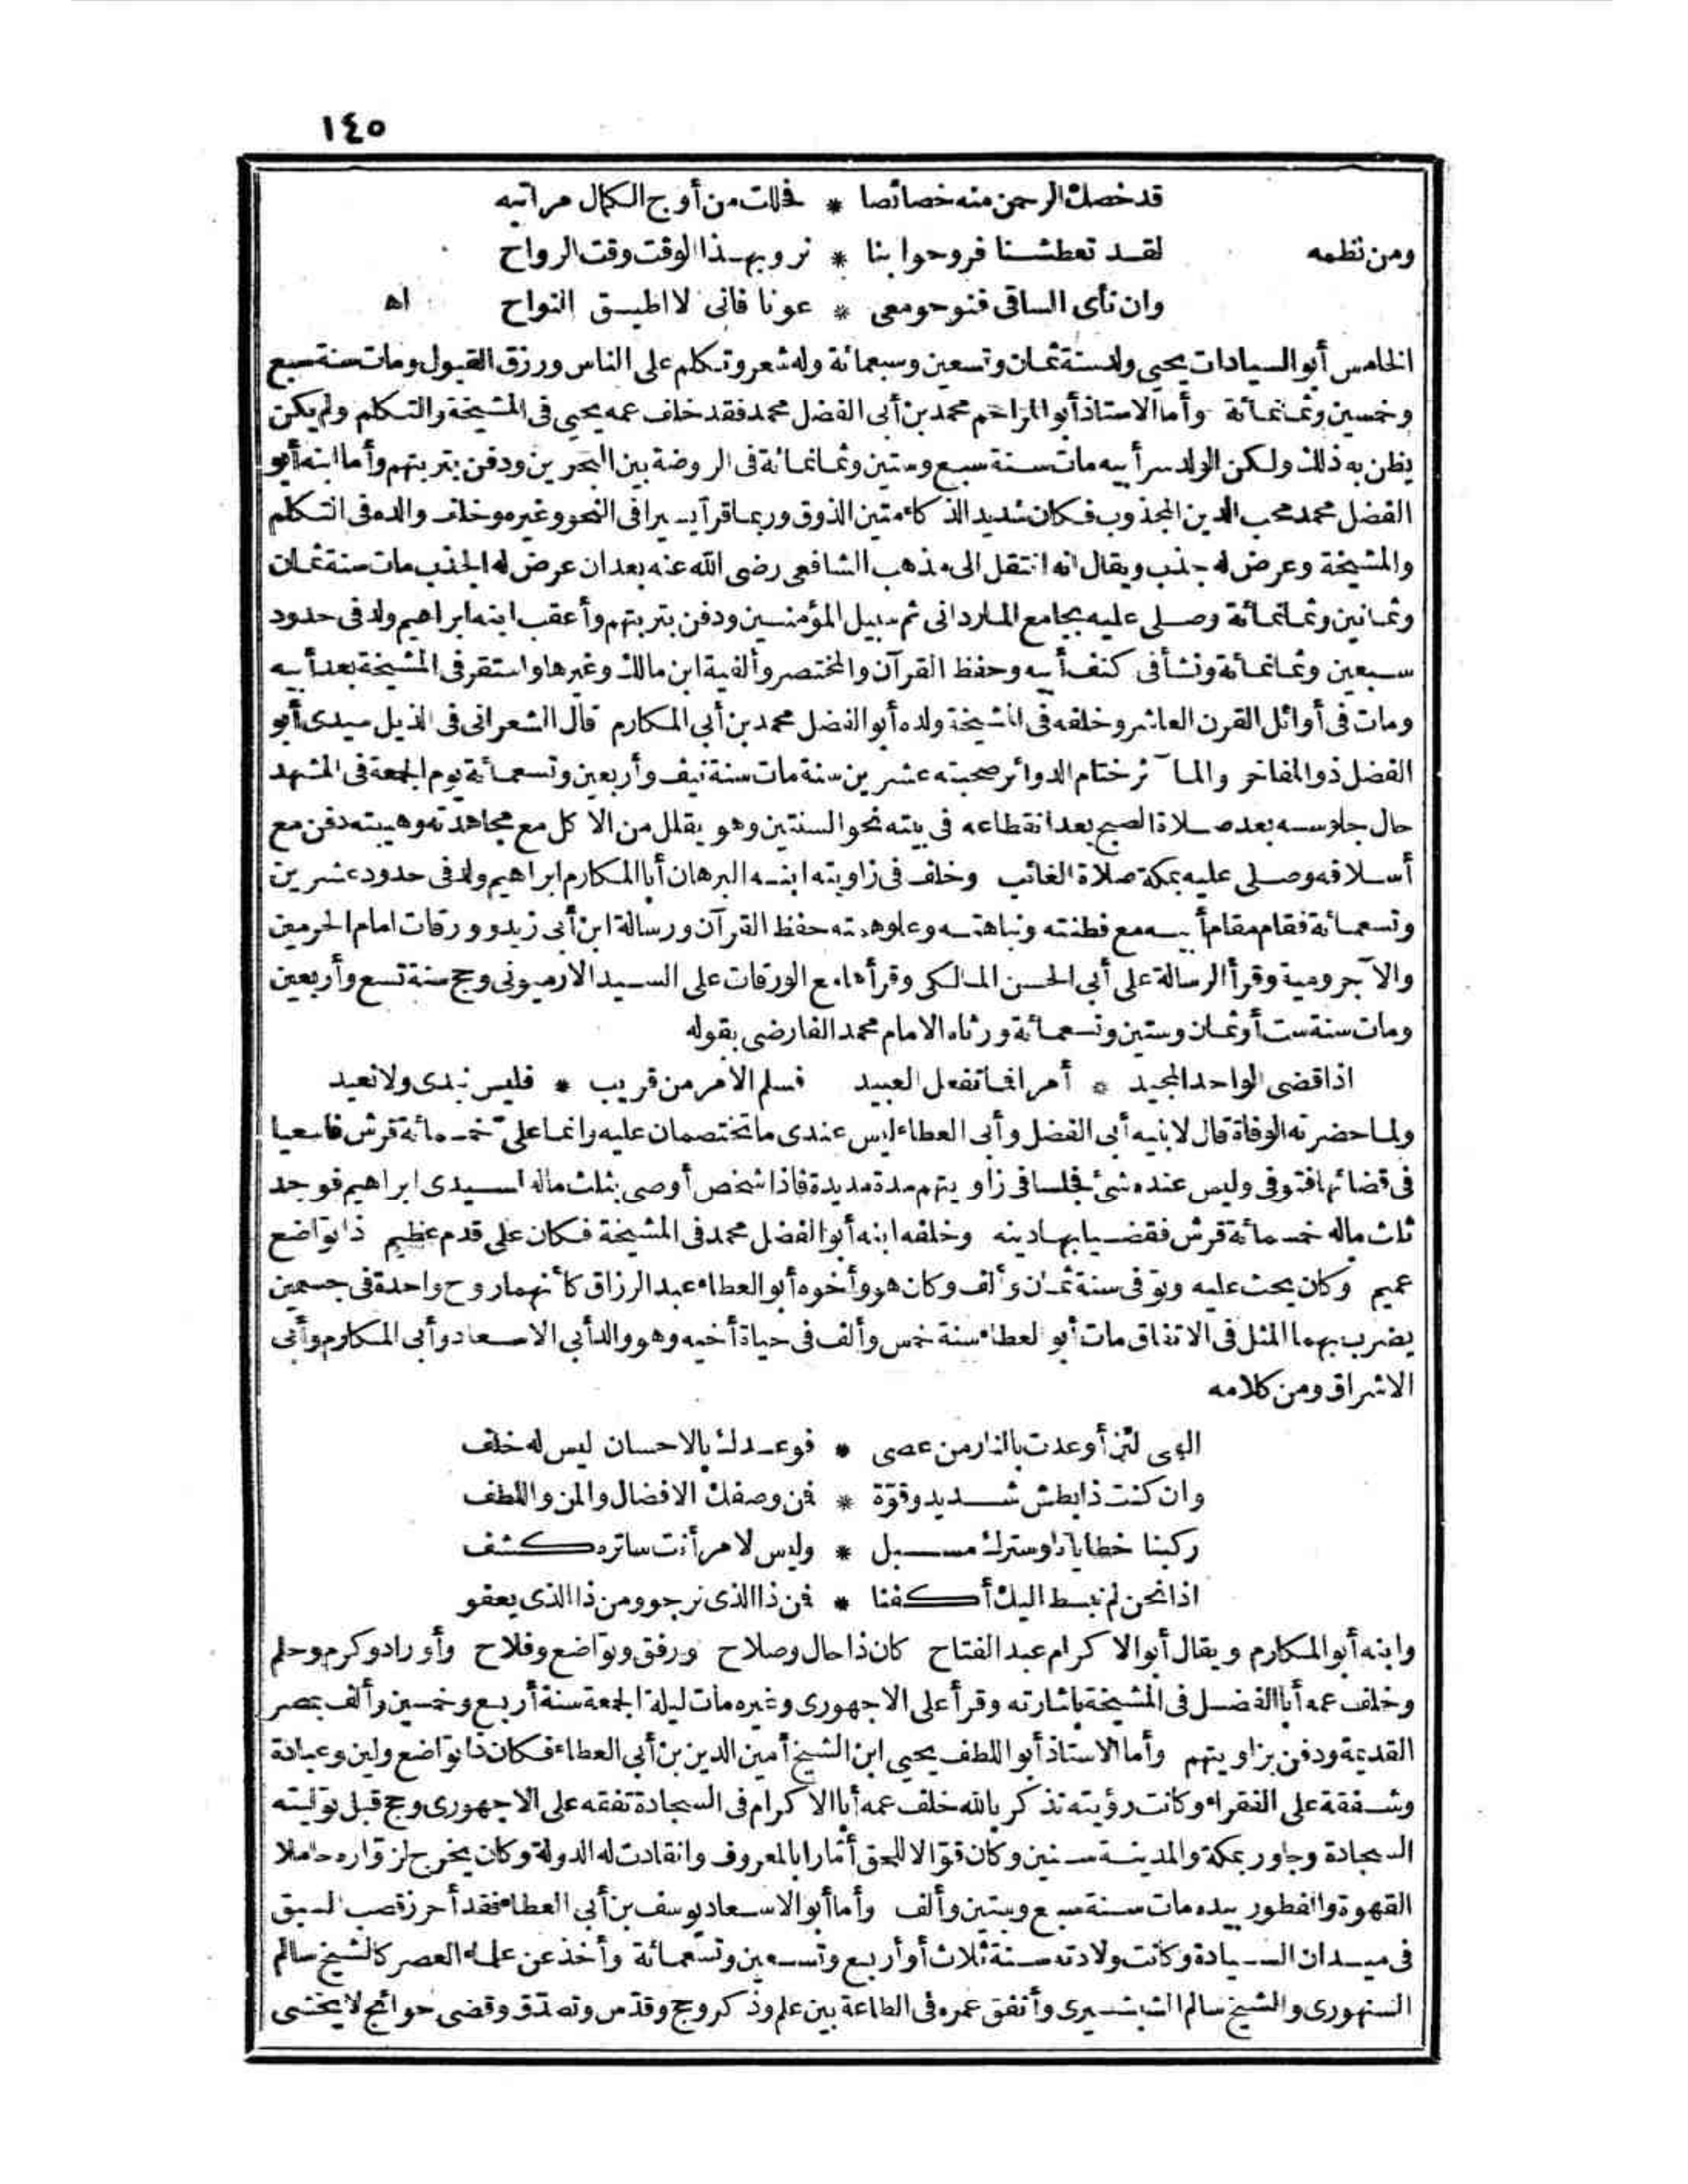 ١٤٥
قد خصك الرحمن منه خصائصا * فحللت من أوج الكمال مراتبه
ومن نظمه لقد تعطشنا فروحوا بنا * نروبهذا الوقت وقت الرواح
وان نأى الساقى فنوحو معى * عونا فانى لا اطيق النواح اه
الخامس أبو السيادات يحيى ولد سنة ثمان وتسعين وسبعمائة وله شعر وتكلم على الناس ورزق القبول ومات سنة سبع
وخمسين وثمانمائة وأما الاستاذ أبو المراحم محمد بن أبى الفضل محمد فقد خلف عمه يحيى فى المشيخة والتكلم ولم يكن
يظن به ذلك ولكن الولد سر أبيه مات سنة سبع وستين وثمانمائة فى الروضة بين البحرين ودفن بتربتهم وأما ابنه أبو
الفضل محمد محب الدين المجذوب فكان شديد الذكاء متين الذوق وربما قرأ يسيرا فى النحو وغيره وخلف والده فى التكلم
والمشيخة وعرض له جذب ويقال انه انتقل الى مذهب الشافعى رضى الله عنه بعد ان عرض له الجذب مات سنة ثمان
وثمانين وثمانمائة وصلى عليه بجامع الماردانى ثم سبيل المؤمنين ودفن بتربتهم وأعقب ابنه ابراهيم ولد فى حدود
سبعين وثمانمائة ونشأ فى كنف أبيه وحفظ القرآن والمختصر وألفية ابن مالك وغيرها واستقر فى المشيخة بعد أبيه
ومات فى أوائل القرن العاشر وخلفه فى المشيخة ولده أبو الفضل محمد بن أبى المكارم قال الشعرانى فى الذيل سيدى أبو
الفضل ذو المفاخر والمآثر ختام الدوائر صحبته عشرين سنة مات سنة نيف وأربعين وتسعمائة يوم الجمعة فى المشهد
حال جلوسه بعد صلاة الصبح بعد انقطاعه فى بيته نحو السنتين وهو يقلل من الاكل مع مجاهدته وهيبته دفن مع
أسلافه وصلى عليه بمكة صلاة الغائب وخلف فى زاويته ابنه البرهان أبا المكارم ابراهيم ولد فى حدود عشرين
وتسعمائة فقام مقام أبيه مع فطنته ونباهته وعلوهمته حفظ القرآن ورسالة ابن أبى زيد وورقات امام الحرمين
والآجرومية وقرأ الرسالة على أبى الحسن المالكى وقرأها مع الورقات على السيد الارميونى وحج سنة تسع وأربعين
ومات سنة ست أوثمان وستين وتسعمائة ورثاه الامام محمد الفارضى بقوله
اذا قضى الواحد المجيد * أمرا فما تفعل العبيد فسلم الأمر من قريب * فليس نبدى ولا نعيد
ولما حضرته الوفاة قال لابنيه أبى الفضل وأبى العطاء ليس عندى ما تختصمان عليه وانما علىّ خمسمائة قرش فاسعيا
فى قضائها فتوفى وليس عنده شئ فجلسا فى زاويتهم مدة مديدة فاذا شخص أوصى بثلث ماله لسيدى ابراهيم فوجد
ثلث ماله خمسمائة قرش فقضيا بها دينه وخلفه ابنه أبو الفضل محمد فى المشيخة فكان على قدم عظيم ذا تواضع
عميم وكان يحث عليه وتوفى سنة ثمان وألف وكان هو وأخوه أبو العطاء عبد الرزاق كأنهما روح واحدة فى جسمين
يضرب بهما المثل فى الاتفاق مات أبو العطاء سنة خمس وألف فى حياة أخيه وهو والد أبى الاسعاد وأبى المكارم وأبى
الاشراق ومن كلامه
الهى لئن أوعدت بالنار من عصى * فوعدك بالاحسان ليس له خلف
وان كنت ذا بطش شديد وقوّة * فمن وصفك الافضال والمن واللطف
ركبنا خطايانا وسترك مسبل * وليس لامر أنت ساتره كشف
اذا نحن لم نبسط اليك أكفنا * فمن ذا الذى نرجو ومن ذا الذى يعفو
وابنه أبو المكارم ويقال أبو الاكرام عبد الفتاح كان ذا حال وصلاح ورفق وتواضع وفلاح وأوراد وكرم وحلم
وخلف عمه أبا الفضل فى المشيخة باشارته وقرأ على الاجهورى وغيره مات ليلة الجمعة سنة أربع وخمسين وألف بمصر
القديمة ودفن بزاويتهم وأما الاستاذ أبو اللطف يحيى ابن الشيخ أمين الدين بن أبى العطاء فكان ذا تواضع ولين وعبادة
وشفقة على الفقراء وكانت رؤيته تذكر بالله خلف عمه أبا الاكرام فى السجادة تفقه على الاجهورى وحج قبل توليته
السجادة وجاور بمكة والمدينة سنين وكان قوّالا للحق أمّارا بالمعروف وانقادت له الدولة وكان يخرج لزوّاره حاملا
القهوة والفطور بيده مات سنة سبع وستين وألف وأما أبو الاسعاد يوسف بن أبى العطاء فقد أحرز قصب السبق
فى ميدان السيادة وكانت ولادته سنة ثلاث أو أربع وتسعين وتسعمائة وأخذ عن علماء العصر كالشيخ سالم
السنهورى والشيخ سالم الشبشيرى وأنفق عمره فى الطاعة بين علم وذكر وحج وقدّس وتصدّق وقضى حوائج لا يخشى